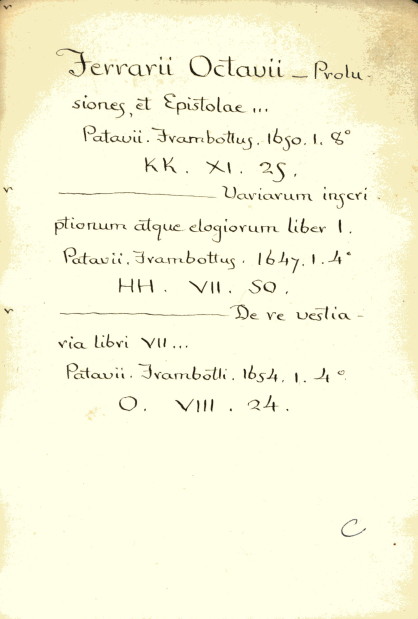 Ferrarii Octavii — Prolu-
siones, et Epistolae ...
Patavii. Frambottus. 1650. 1. 8°
KK. XI. 25.
——— Variarum inscri-
ptionum atque elogiorum liber 1.
Patavii. Frambottus. 1647. 1. 4°
HH. VII. 50.
——— De re vestia-
ria libri VII ...
Patavii. Frambotti. 1654. 1. 4°
O. VIII. 24.
C